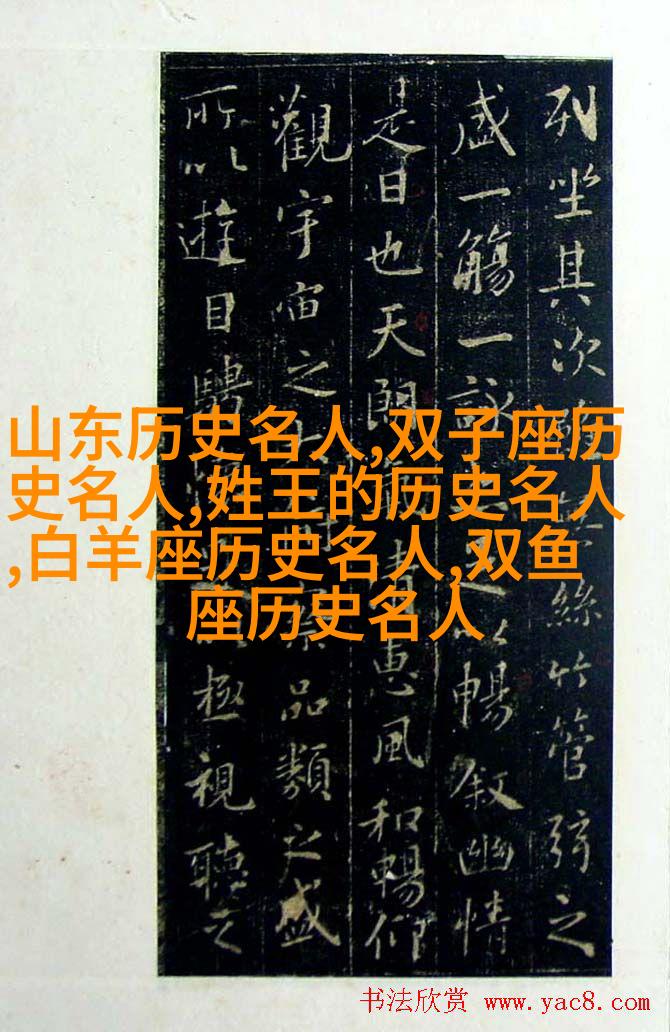 列坐其次絲竹管弦之
盛一觴一詠以暢叙幽情
是日也天朗清惠風和暢仰
觀宇宙之品類之盛
所以遊目騁極視聽之
山东历史名人,双子座历
史名人,姓王的历史名人
,白羊座历史名人,双鱼
座历史名人
书法欣赏 www.yac8.com